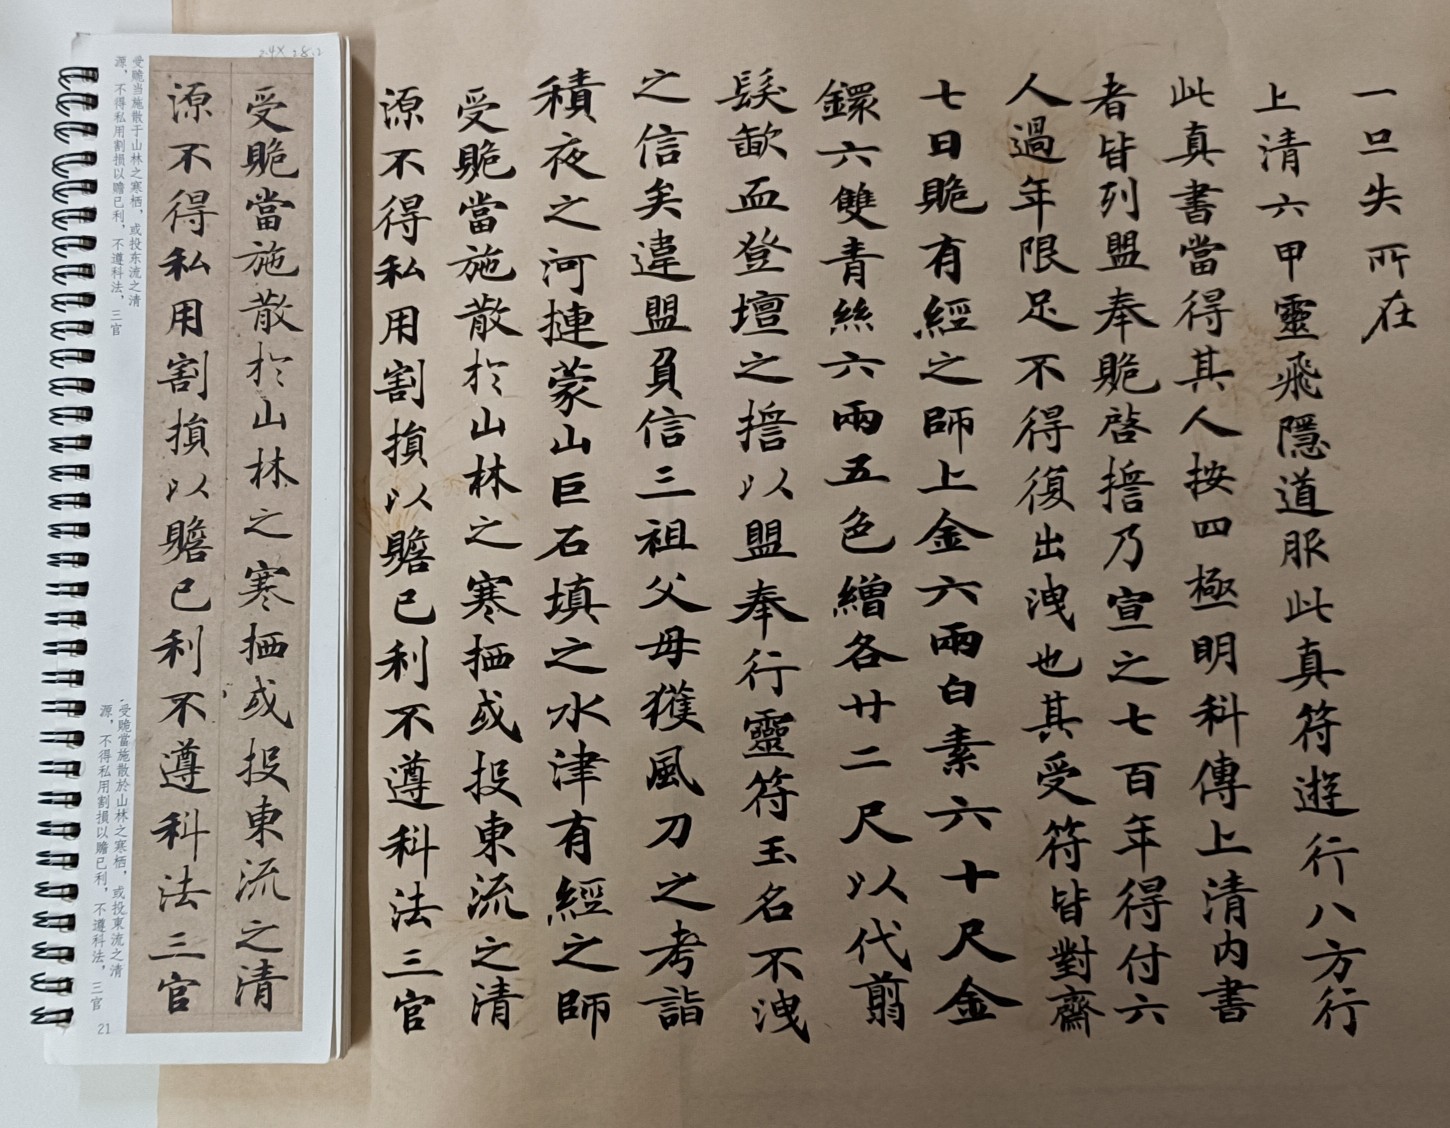 一旦失所在
上清六甲靈飛隱道服此真符遊行八方行
此真書當得其人按四極明科傳上清內書
者皆列盟奉貽啓擔乃宣之七百年得付六
人過年限足不得復出洩也其受符皆對齋
七日貽有經之師上金六兩白素六十尺金
鐶六雙青絲六兩五色繒各廿二尺以代翦
髮歃血登壇之擔以盟奉行靈符玉名不洩
之信矣違盟負信三祖父母獲風刀之考詣
積夜之河摙蒙山巨石填之水津有經之師
受貽當施散於山林之寒栖或投東流之清
源不得私用割損以贍己利不遵科法三官
24X 28.2
受貽當施散於山林之寒栖或投東流之清
源不得私用割損以贍己利不遵科法三官
受贻当施散于山林之寒栖，或投东流之清
源，不得私用割损以赡己利，不遵科法，三官
受貽當施散於山林之寒栖，或投東流之清
源，不得私用割損以贍己利，不遵科法，三官
21